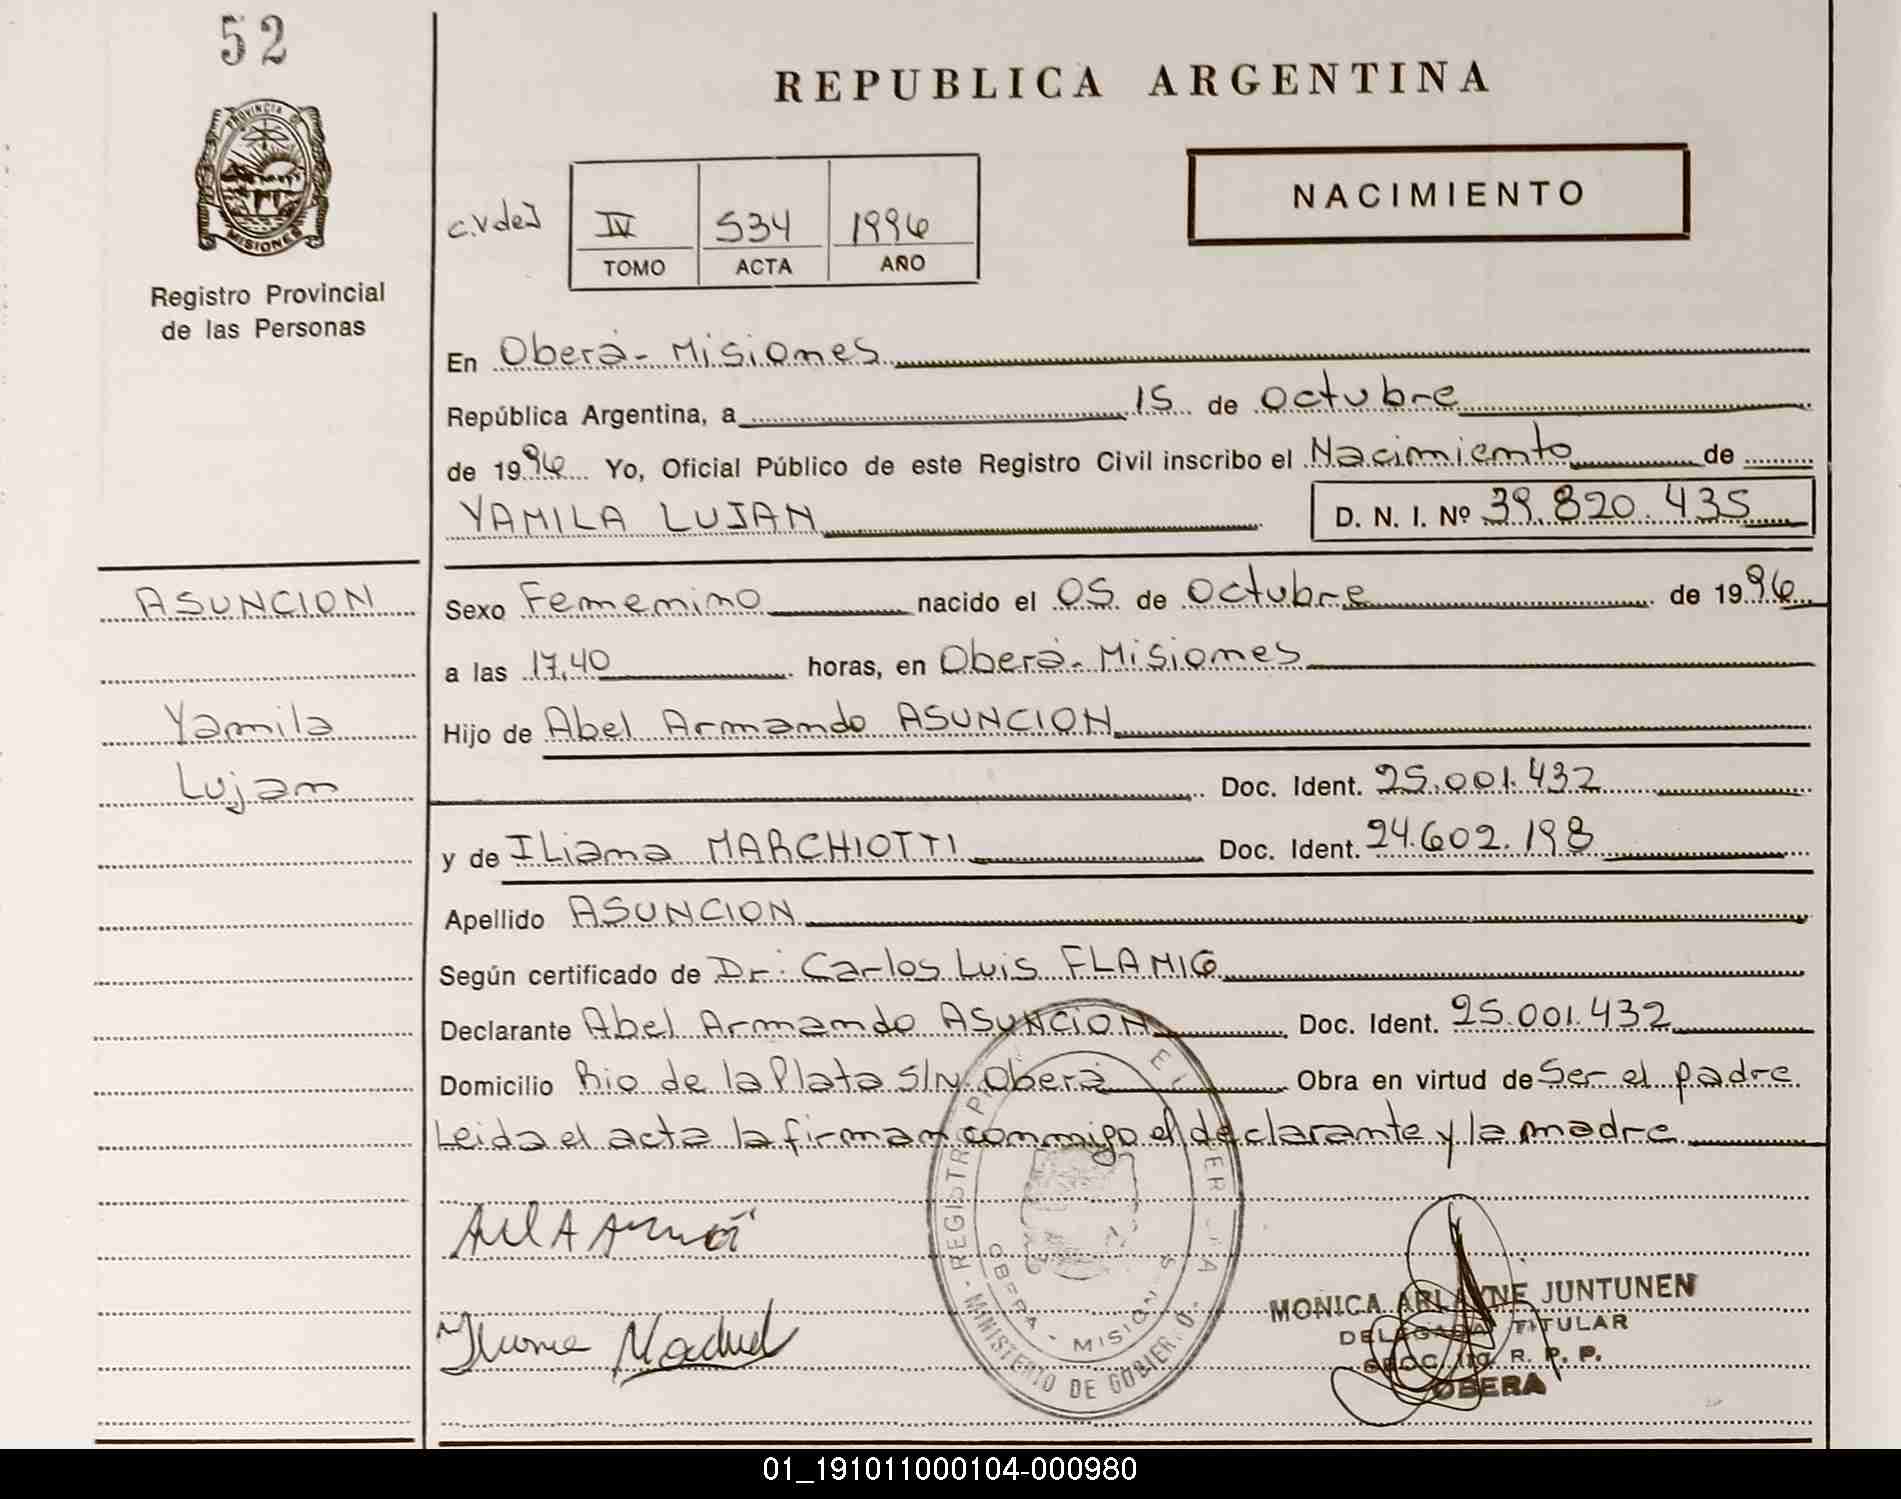 52
REPUBLICA ARGENTINA
NACIMIENTO
PROVINCIA DE
MISIONES
Registro Provincial
de las Personas
c.v de J
IV 534 1996
TOMO ACTA AÑO
En Oberá - Misiones
República Argentina, a 15 de Octubre
de 1996 Yo, Oficial Público de este Registro Civil inscribo el Nacimiento de
YAMILA LUJAN D. N. I. Nº 39.820.435
ASUNCION
Yamila
Lujan
Sexo Femenino nacido el 05 de Octubre de 1996
a las 17,40 horas, en Oberá - Misiones
Hijo de Abel Armando ASUNCION
Doc. Ident. 25.001.432
y de ILiana MARCHIOTTI Doc. Ident. 24.602.198
Apellido ASUNCION
Según certificado de Dr: Carlos Luis FLAMIG
Declarante Abel Armando ASUNCION Doc. Ident. 25.001.432
Domicilio Rio de la Plata S/N Oberá Obra en virtud de Ser el padre
Leida el acta la firman conmigo el declarante y la madre
REGISTR
OBERA - MISION S
MINISTERIO DE GOBIER
MONICA ARLAYNE JUNTUNEN
DELEGADA TITULAR
R. P. P.
OBERA
01_191011000104-000980